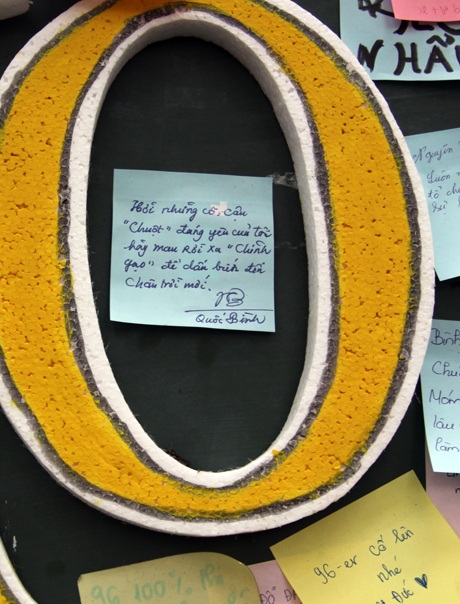 NHẮ
Hỡi những cô, cậu
"Chuột" đáng yêu của tôi
hãy mau rời xa "Chĩnh
gạo" để dấn bước đến
Chân trời mới.
Quốc Bình
Nguyễn
Luôn
tổ ch
Bình
Chu
Món
lâu
làm
96-er cố lên
nhé
Đức
96 100%